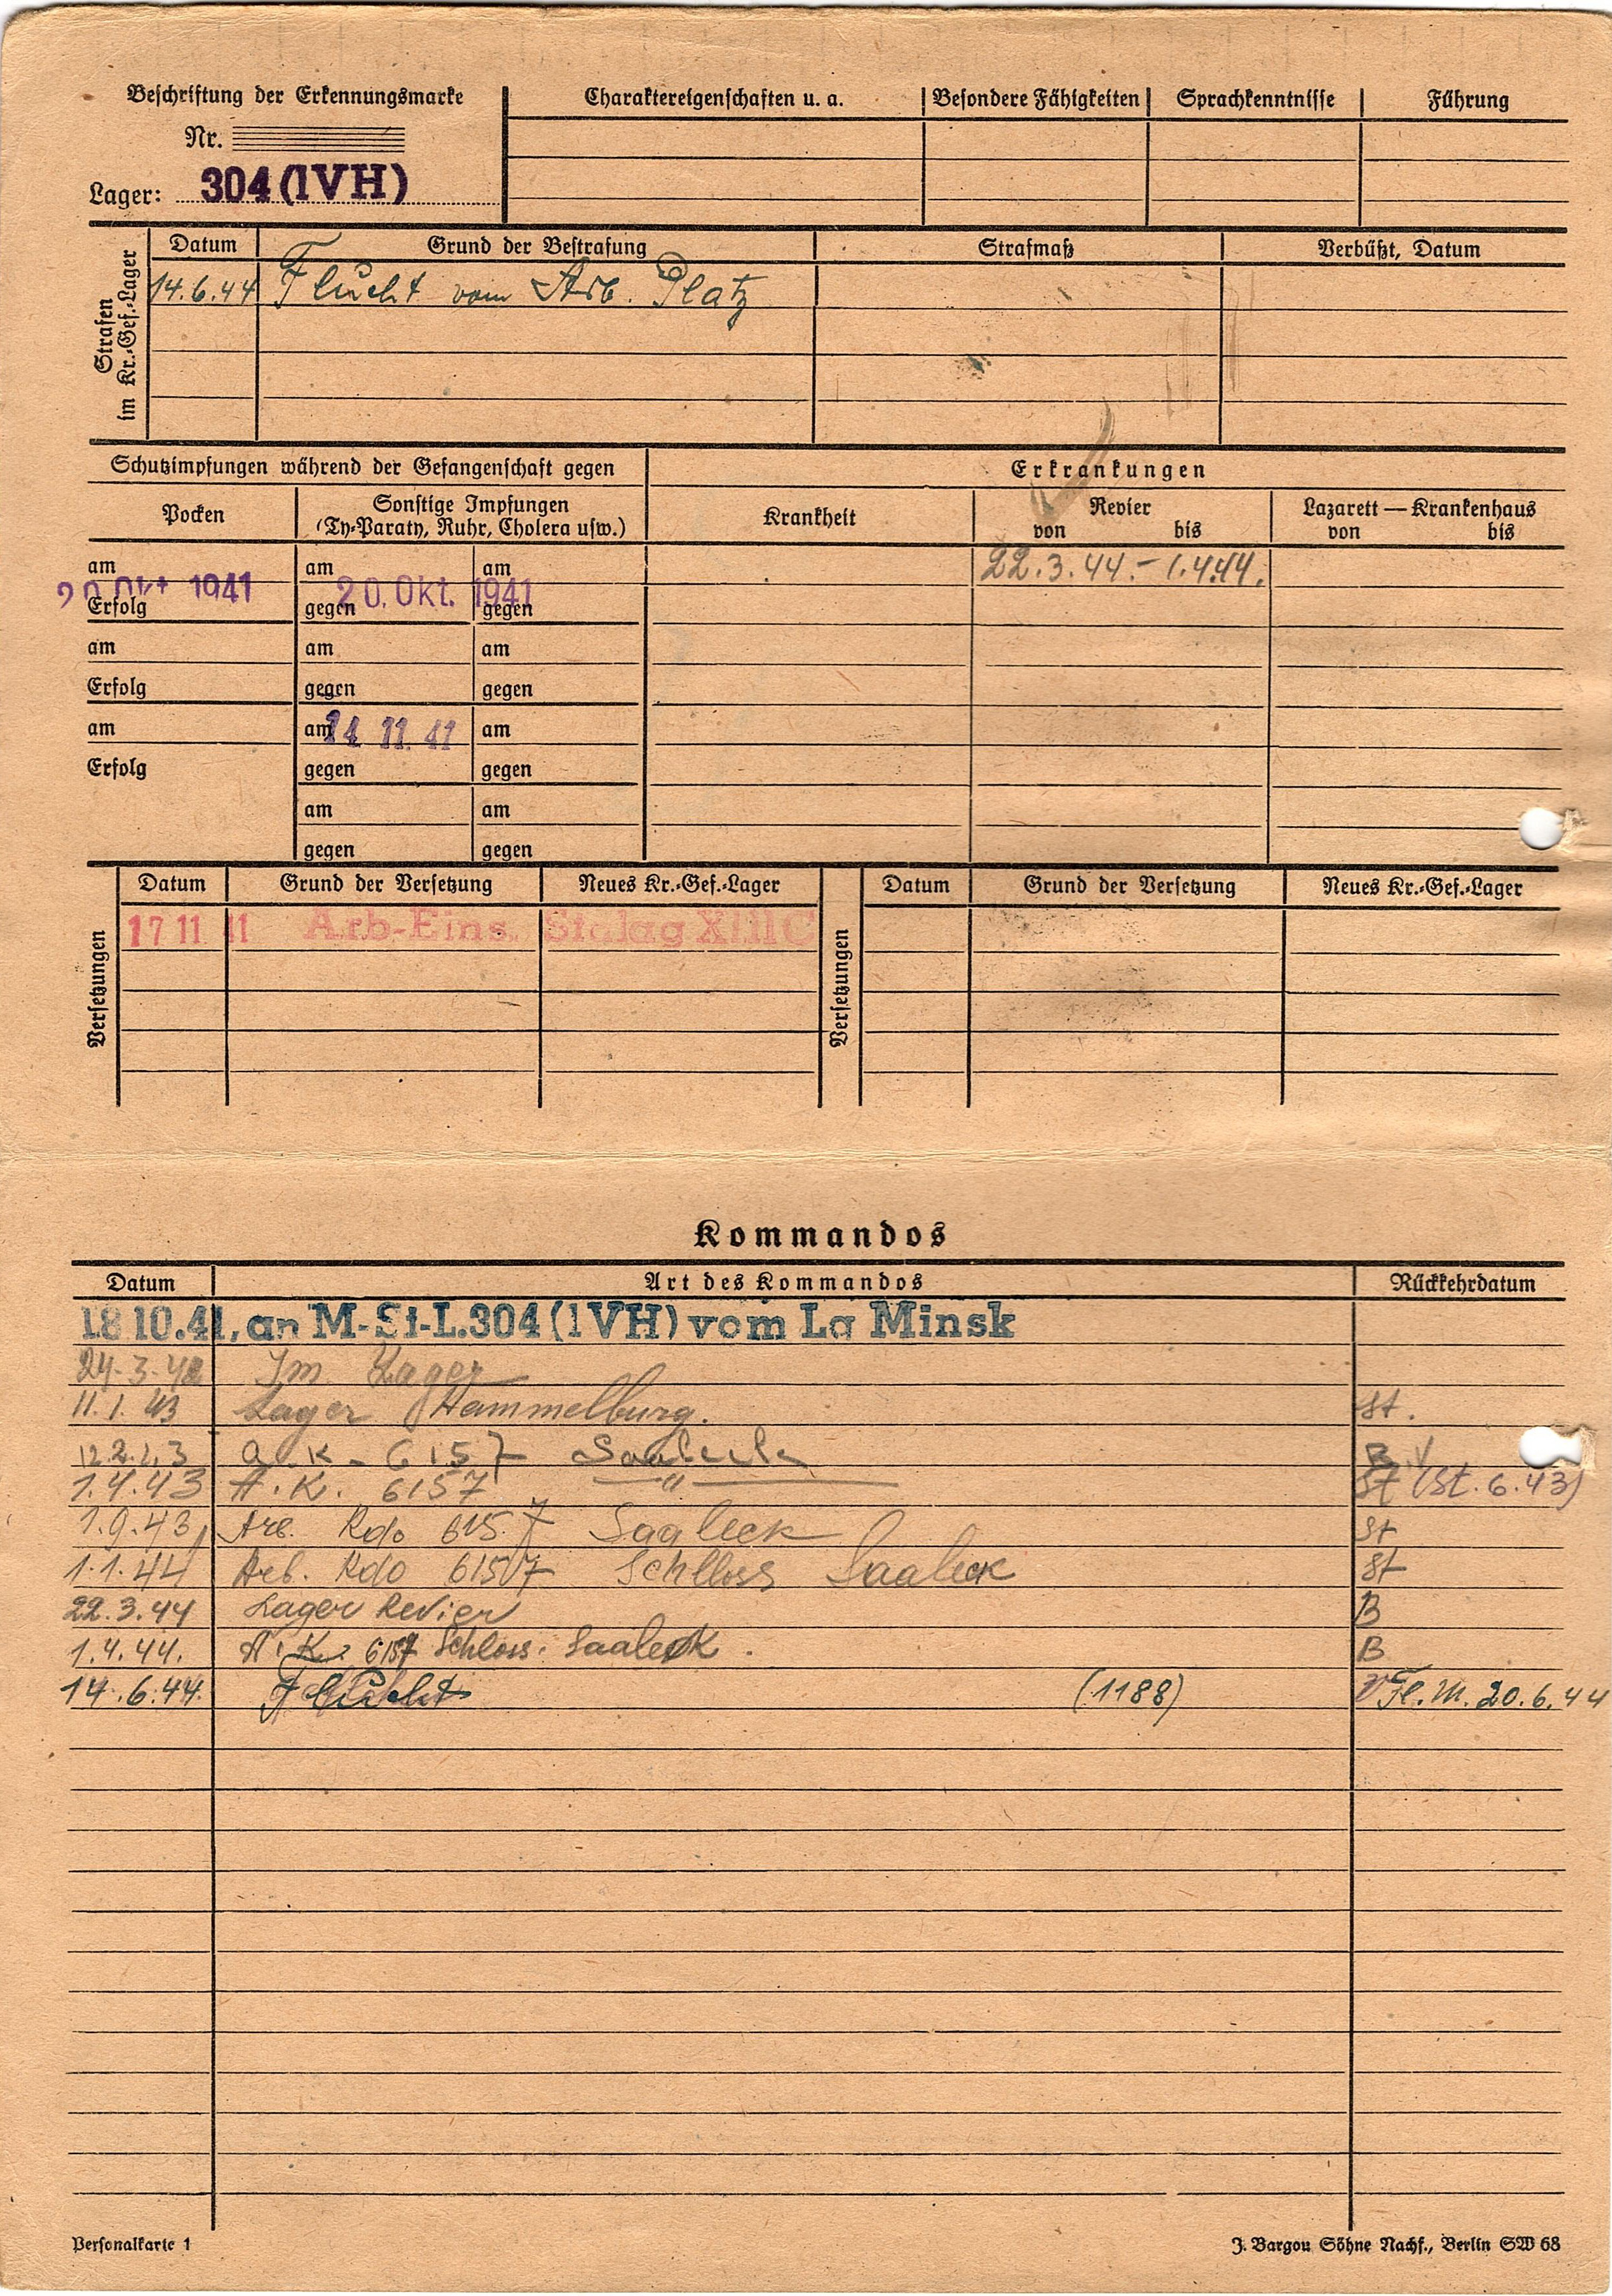 Beschriftung der Erkennungsmarke
Nr.
Lager: 304 (IVH)
Charaktereigenschaften u. a. Besondere Fähigkeiten Sprachkenntnisse Führung
Strafen im Kr.-Gef.-Lager
Datum Grund der Bestrafung Strafmaß Verbüßt, Datum
14.6.44 Flucht vom Arb. Platz
Schutzimpfungen während der Gefangenschaft gegen Erkrankungen
Pocken Sonstige Impfungen (Ty-Paraty, Ruhr, Cholera usw.) Krankheit Revier von bis Lazarett — Krankenhaus von bis
am am am 22.3.44.- 1.4.44.
20 Okt 1941 20. Okt. 1941
Erfolg gegen gegen
am am am
Erfolg gegen gegen
am am 14 11. 41 am
Erfolg gegen gegen
am am
gegen gegen
Versetzungen
Datum Grund der Versetzung Neues Kr.-Gef.-Lager
17 11 41 Arb-Eins. Stalag XIII C
Versetzungen
Datum Grund der Versetzung Neues Kr.-Gef.-Lager
Kommandos
Datum Art des Kommandos Rückkehrdatum
18 10.41, an M-St-L.304 (IVH) vom La Minsk
24.3.42 Im Lager
11.1.43 Lager Hammelburg. St.
12.2.43 A.K. - 6157 Saaleck B
1.4.43 A.K. 6157 — " — St (St. 6.43)
1.9.43 Arb. Kdo 6157 Saaleck St
1.1.44 Arb. Kdo 6157 Schlloss Saaleck St
22.3.44 Lager Revier B
1.4.44. A.K. 6157 Schloss. Saaleck. B
14.6.44. Flucht (1188) Fl.M. 20.6.44
Personalkarte 1
J. Bargou Söhne Nachf., Berlin SW 68